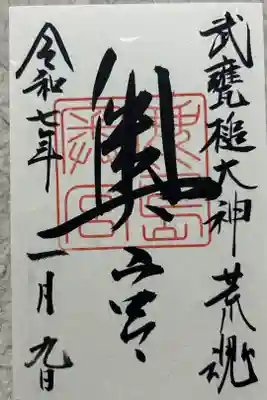 武甕槌大神 荒魂
奥宮
令和七年 一月 九日